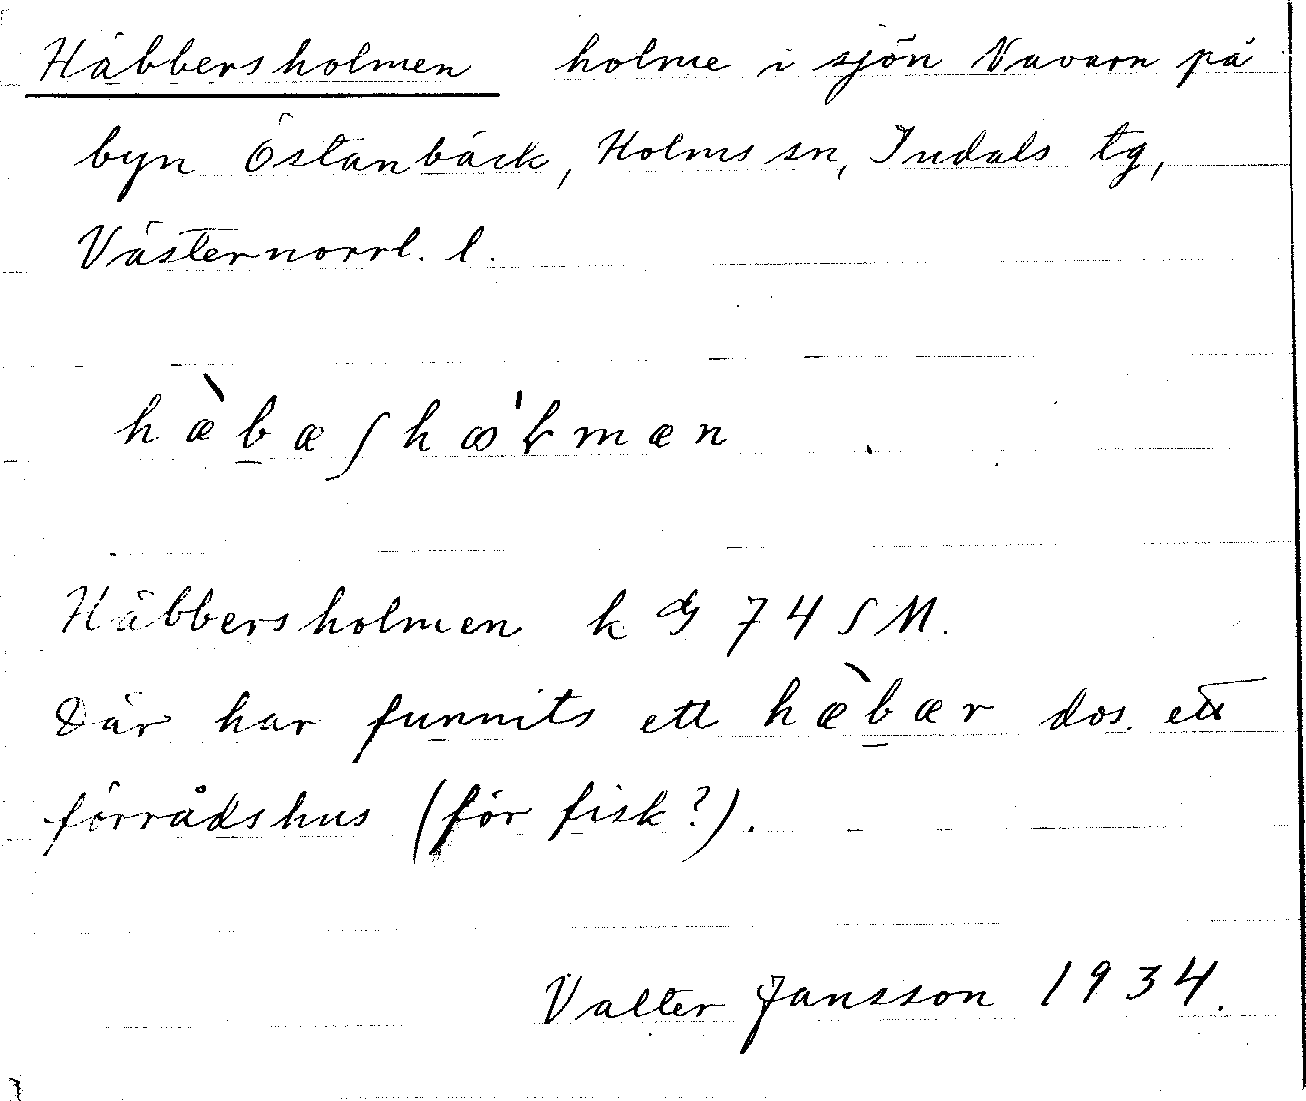 Häbbersholmen holme i sjön Vavarn på
byn Östanbäck, Holms sn, Indals tg,
Västernorrl. l.
hæ̀bæʃhω'ɫmæn
Häbbersholmen k 74 SM.
Där har funnits ett hæ̀bær dvs. ett
förrådshus (för fisk?).
Valter Jansson 1934.